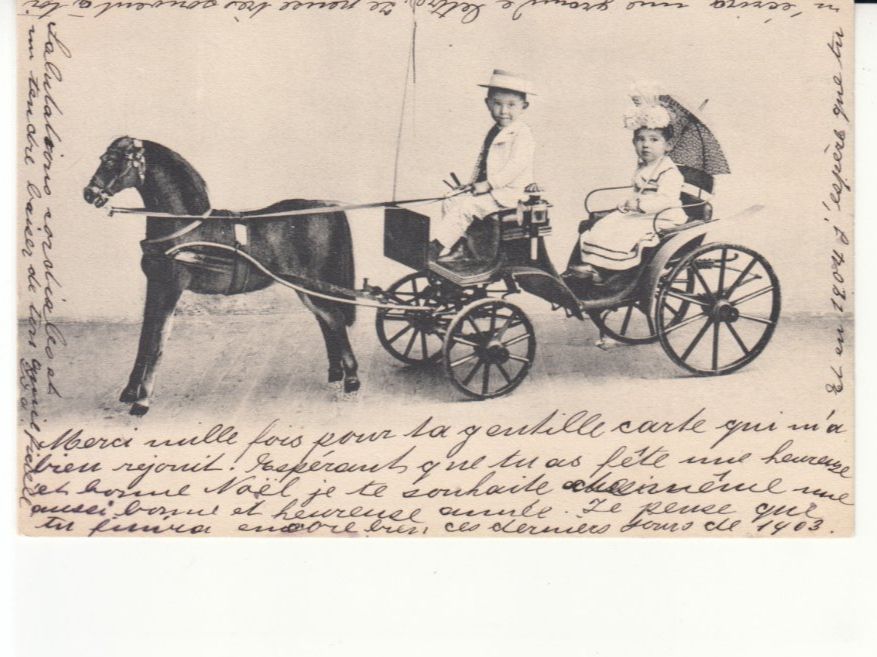 Merci mille fois pour ta gentille carte qui m'a
bien rejouit. Espérant que tu as fête une heureuse
et bonne Noël je te souhaite même une
aussi bonne et heureuse année. Je pense que
tu finira encore bien ces derniers jours de 1903.
Et en 1904 j'espère que tu
m'écrira une grande lettre. Je pense très souvent à toi
Salutations cordiales et
un tendre baiser de ton amie